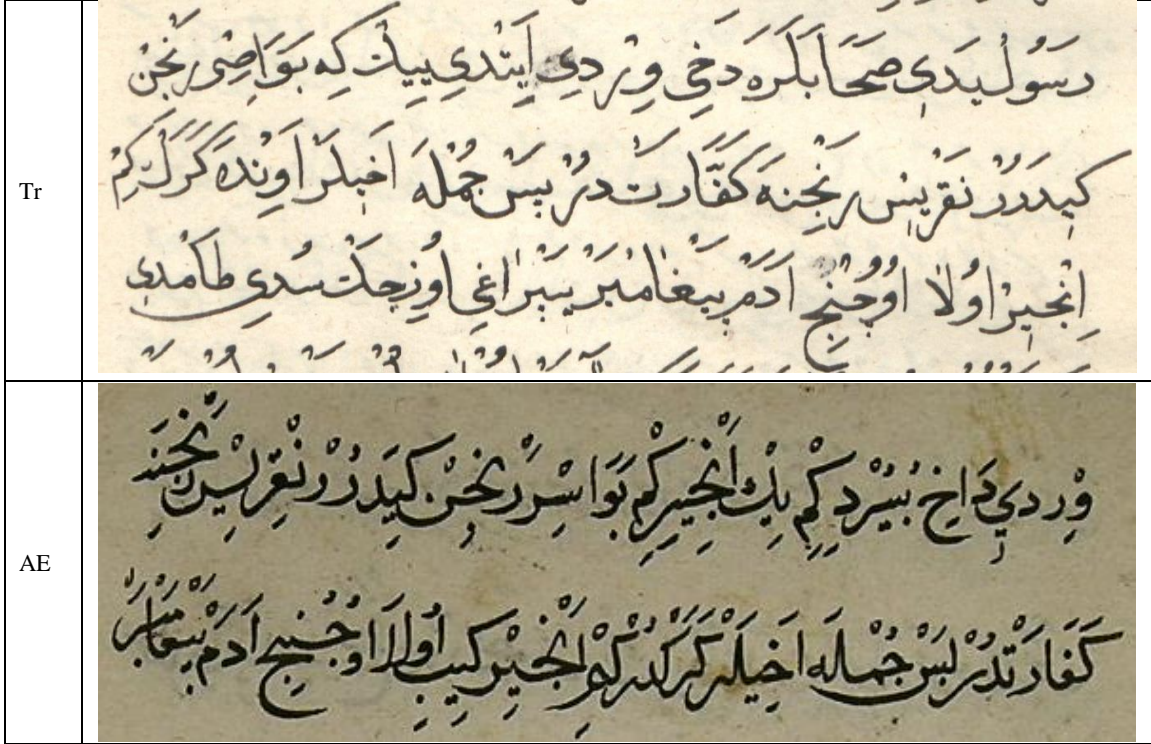 Tr
رَسُولْ يَدِى صحَابَلَرَه دَخِى وِرْدِى اَيِتْدِى يِيكْ كِه بَوَاصِى رنجن
كيدَرُرْ نقريس رنجنه كَفَّارَت دُرْ بَسْ جُمْلَه اَخِيلَرْ اَوِنْدَه كَرَكْ كِمْ
اِنْجِيرْ اوُلَا اوُچُنْجِ اَدَمْ پَيْغَامْبَرْ يَپْرَاغِى اوُزِجَكْ سُدِى طَامْدِى
AE
وِرْدِي دَاخِ بُيُرْدِ كِمْ يِيْكْ اَنْجِيرِ كِمْ بَوَاسِرْ رَنْجِنْ كِيدَرُرْ نْقِرِيسْ رَنْجِنَه
كَفَارَتْدُرْ بَسْ جُمْلَه اَخِيلَرْ كَرَكْدُرْ كِبُو اَنْجِيرْ كِيبِ اُولَا اوُچُنْجِ اَدَمْ پَيْغَامْبَرْ